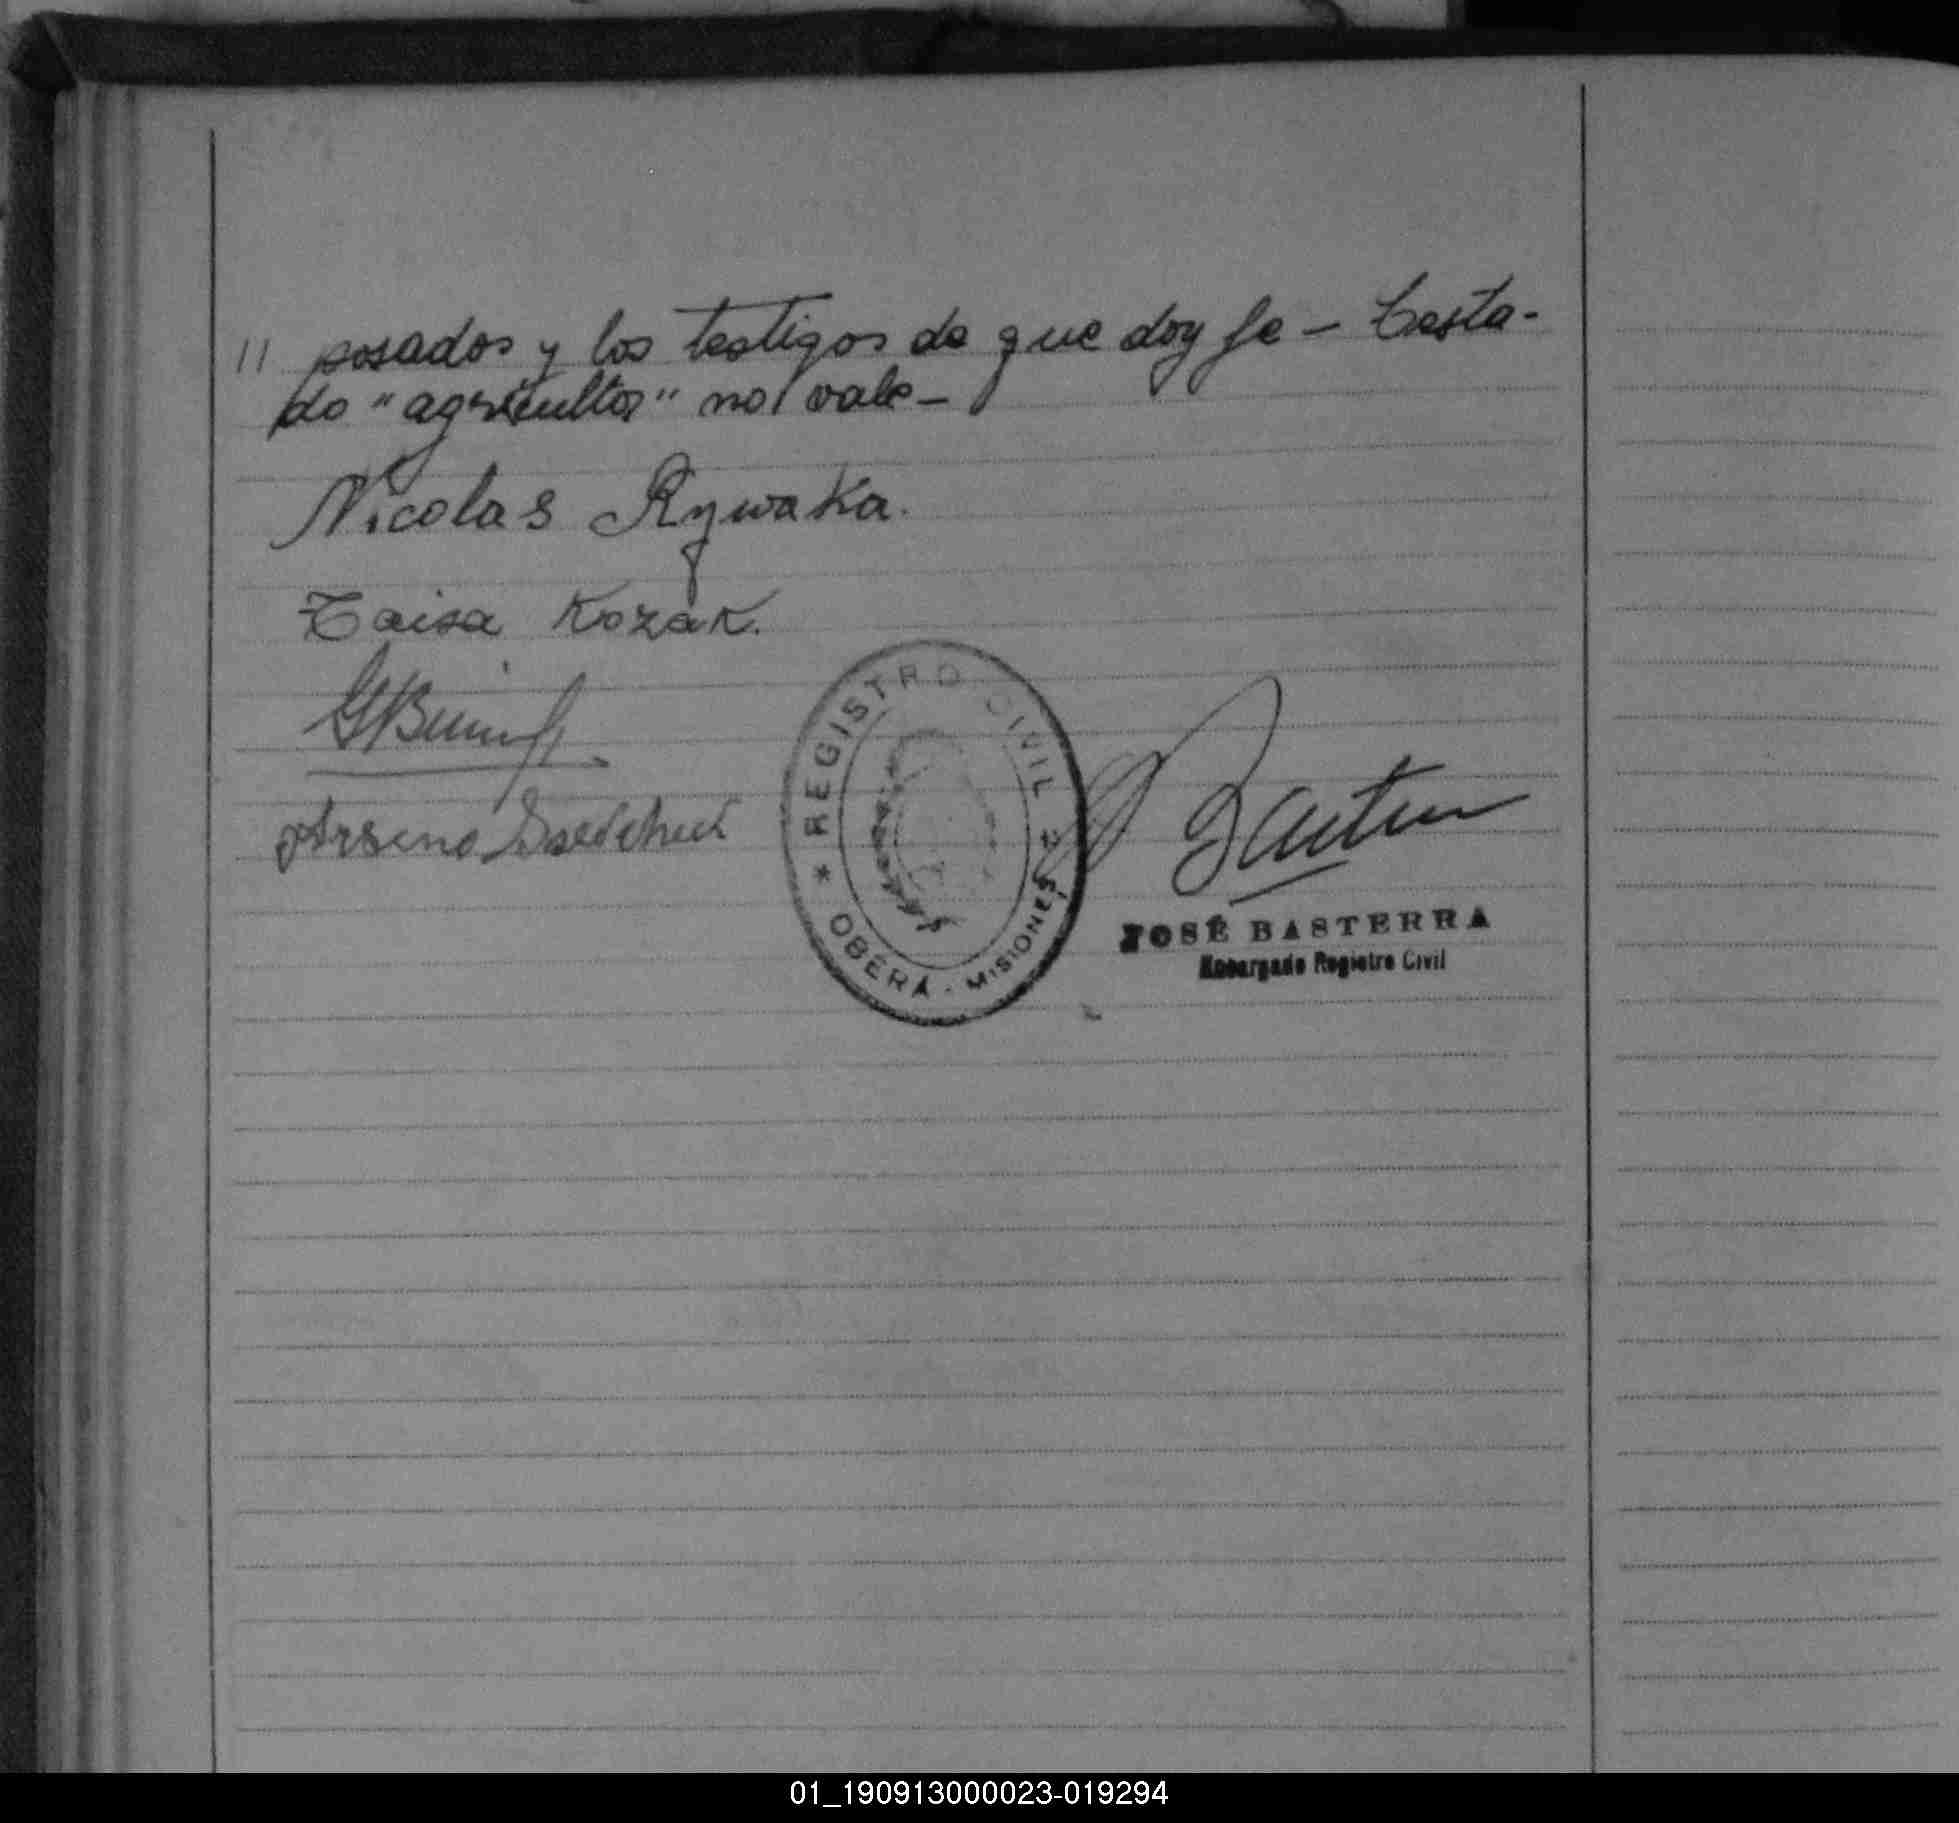 11 posados y los testigos de que doy fe - Testa-
do "agricultor" no vale -
Nicolas Rywaka.
Taisa Kozak.
Arseno
REGISTRO CIVIL
* OBERÁ - MISIONES
JOSÉ BASTERRA
Encargado Registro Civil
01_190913000023-019294